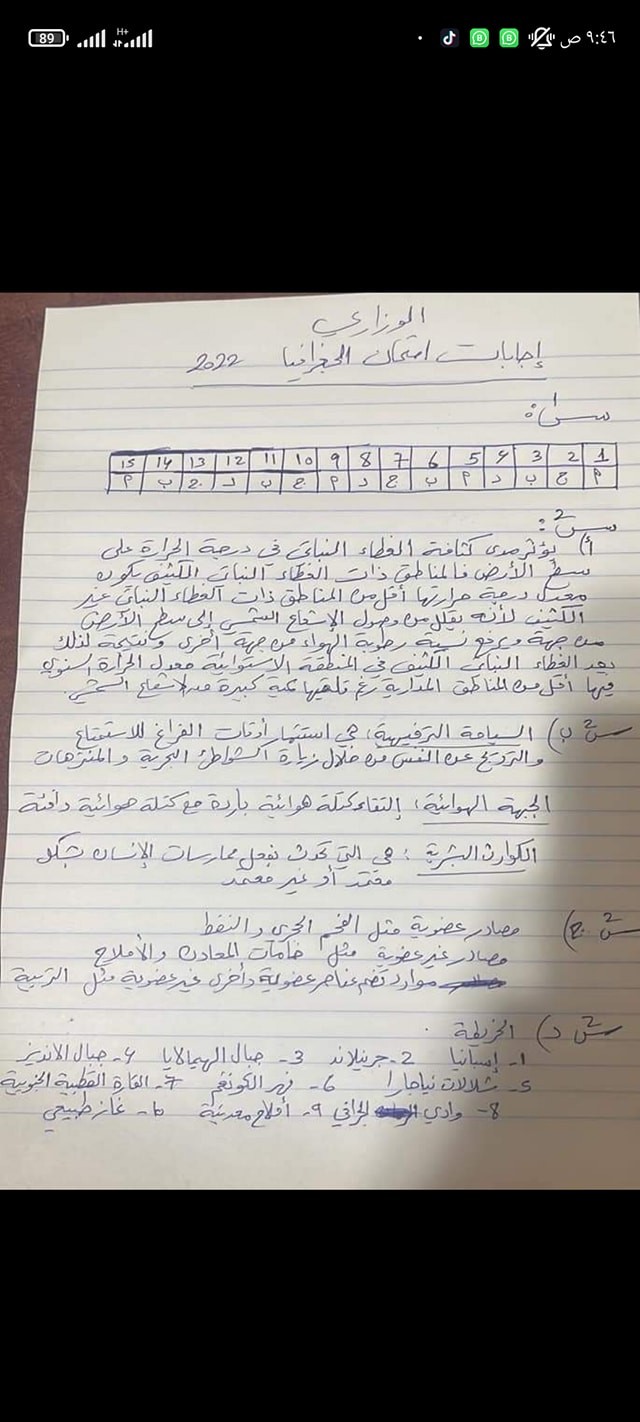 89 H+ ٩:٤٦ ص
الوزاري
إجابات امتحان الجغرافيا 2022
س١:
1 2 3 4 5 6 7 8 9 10 11 12 13 14 15
م ج ب د م ب ج د م ج ب د ج ب م
س2:
أ) يؤثر مدى كثافة الغطاء النباتي في درجة الحرارة على
سطح الأرض فالمناطق ذات الغطاء النباتي الكثيف يكون
معدل درجة حرارتها أقل من المناطق ذات الغطاء النباتي غير
الكثيف لأنه يقلل من وصول الإشعاع الشمسي إلى سطح الأرض
من جهة ويرفع نسبة رطوبة الهواء من جهة أخرى ونتيجة لذلك
يعد الغطاء النباتي الكثيف في المنطقة الاستوائية معدل الحرارة السنوي
فيها أقل من المناطق المدارية رغم تلقيها كمية كبيرة من الاشعاع الشمسي.
س2 ب) السياحة الترفيهية: هي استثمار أوقات الفراغ للاستمتاع
والترويح عن النفس من خلال زيارة الشواطئ البحرية والمنتزهات
الجبهة الهوائية: إلتقاء كتلة هوائية باردة مع كتلة هوائية دافئة
الكوارث البشرية: هي التي تحدث بفعل ممارسات الإنسان بشكل
متعمد أو غير متعمد
س2 ج) مصادر عضوية مثل الفحم الحجري والنفط
مصادر غير عضوية مثل خامات المعادن والأملاح
موارد تضم عناصر عضوية وأخرى غير عضوية مثل التربة
س2 د) الخريطة
1- إسبانيا 2- جرينلاند 3- جبال الهيمالايا 4- جبال الانديز
5- شلالات نياجارا 6- نهر الكونغو 7- القارة القطبية الجنوبية
8- وادي الجرافي 9- أملاح معدنية 10- غاز طبيعي